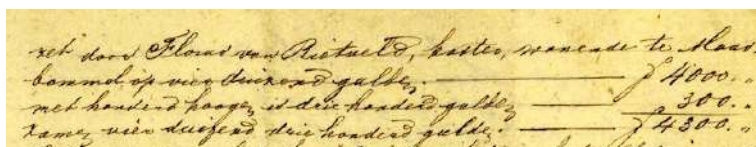 zet door Floris van Rietveld, koster, wonende te Maas
bommel op vier duizend gulden. ƒ 4000.„
met honderd hoogen is drie honderd gulden 300.„
zamen vier duizend drie honderd gulden. ƒ 4300.„